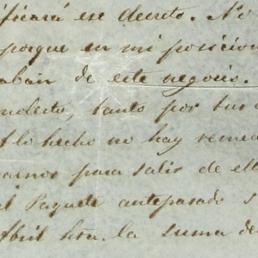 ese decreto. No
porque en mi posicion
de este negocio.
tanto por sus
lo hecho no hay reme
para salir de
Paquete antepasado
Abril hta. la suma de